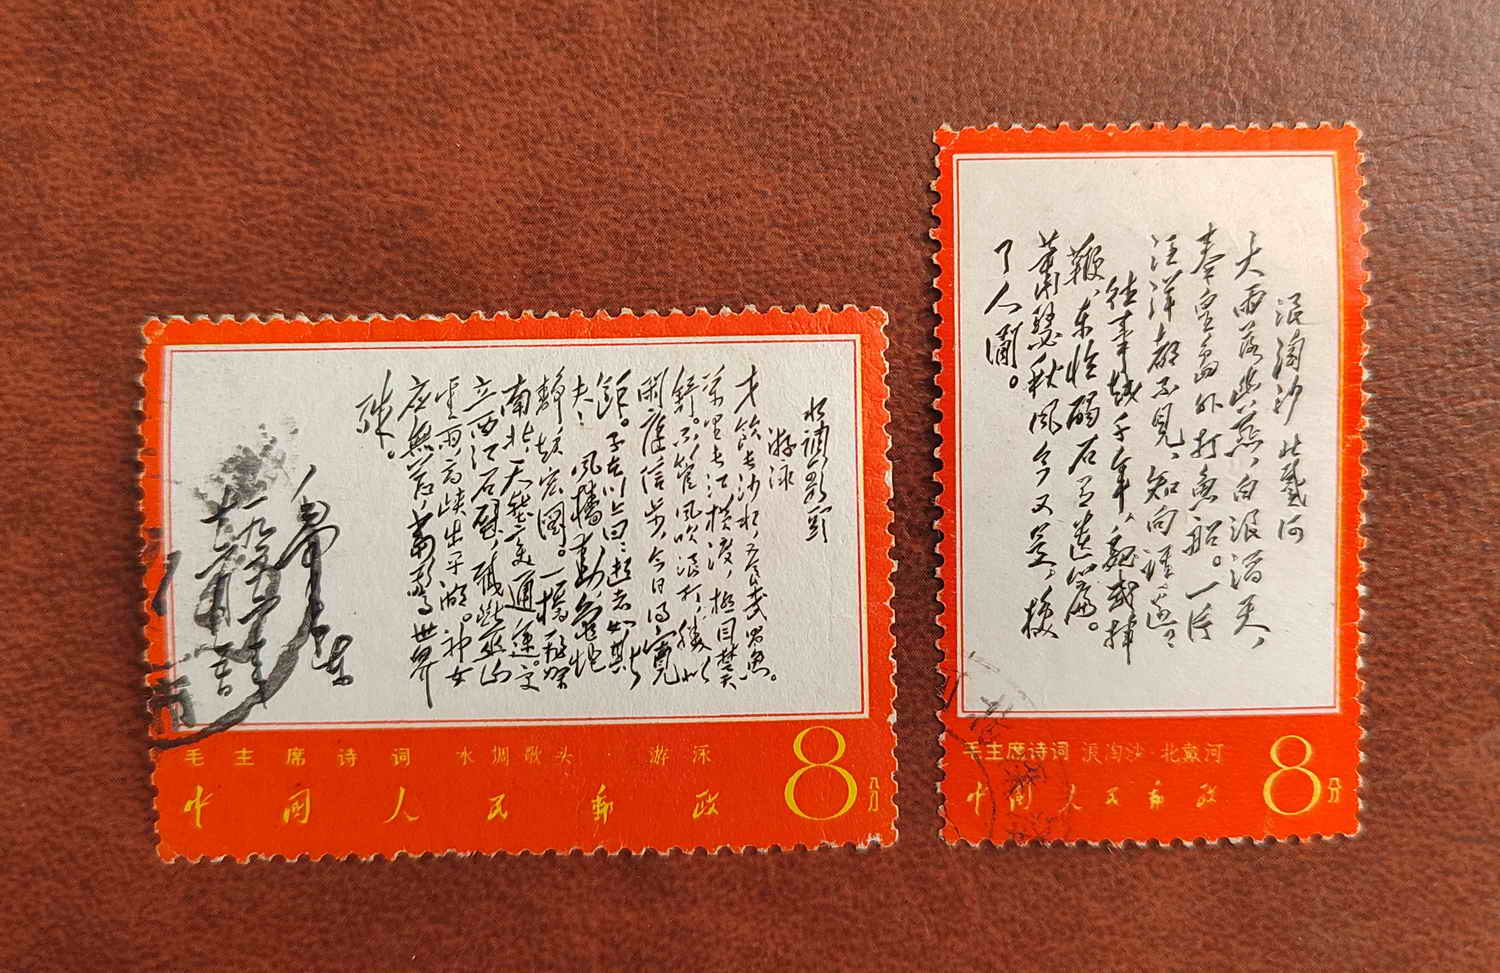 水调歌头
游泳
才饮长沙水，又食武昌鱼。
万里长江横渡，极目楚天
舒。不管风吹浪打，胜似
闲庭信步，今日得宽
馀。子在川上曰：逝者如斯
夫！风樯动，龟蛇
静，起宏图。一桥飞架
南北，天堑变通途。更
立西江石壁，截断巫山
云雨，高峡出平湖。神女
应無恙，当惊世界
殊。
毛泽东
毛主席诗词 水调歌头·游泳
中国人民邮政
8分
浪淘沙 北戴河
大雨落幽燕，白浪滔天，
秦皇岛外打鱼船。一片
汪洋都不见，知向谁边？
往事越千年，魏武挥
鞭，东临碣石有遗篇。
萧瑟秋风今又是，换
了人间。
毛主席诗词 浪淘沙·北戴河
中国人民邮政
8分